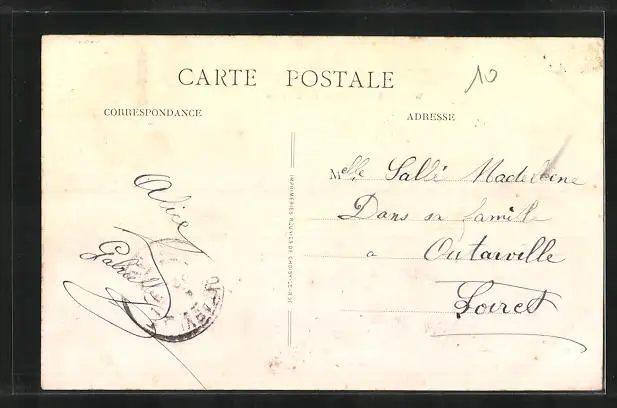 CARTE POSTALE
10
CORRESPONDANCE
ADRESSE
Melle Sallé Madeleine
Dans sa famille
a Outarville
Loiret
Alice
Gabrielle
IMPRIMERIES RÉUNIES DE